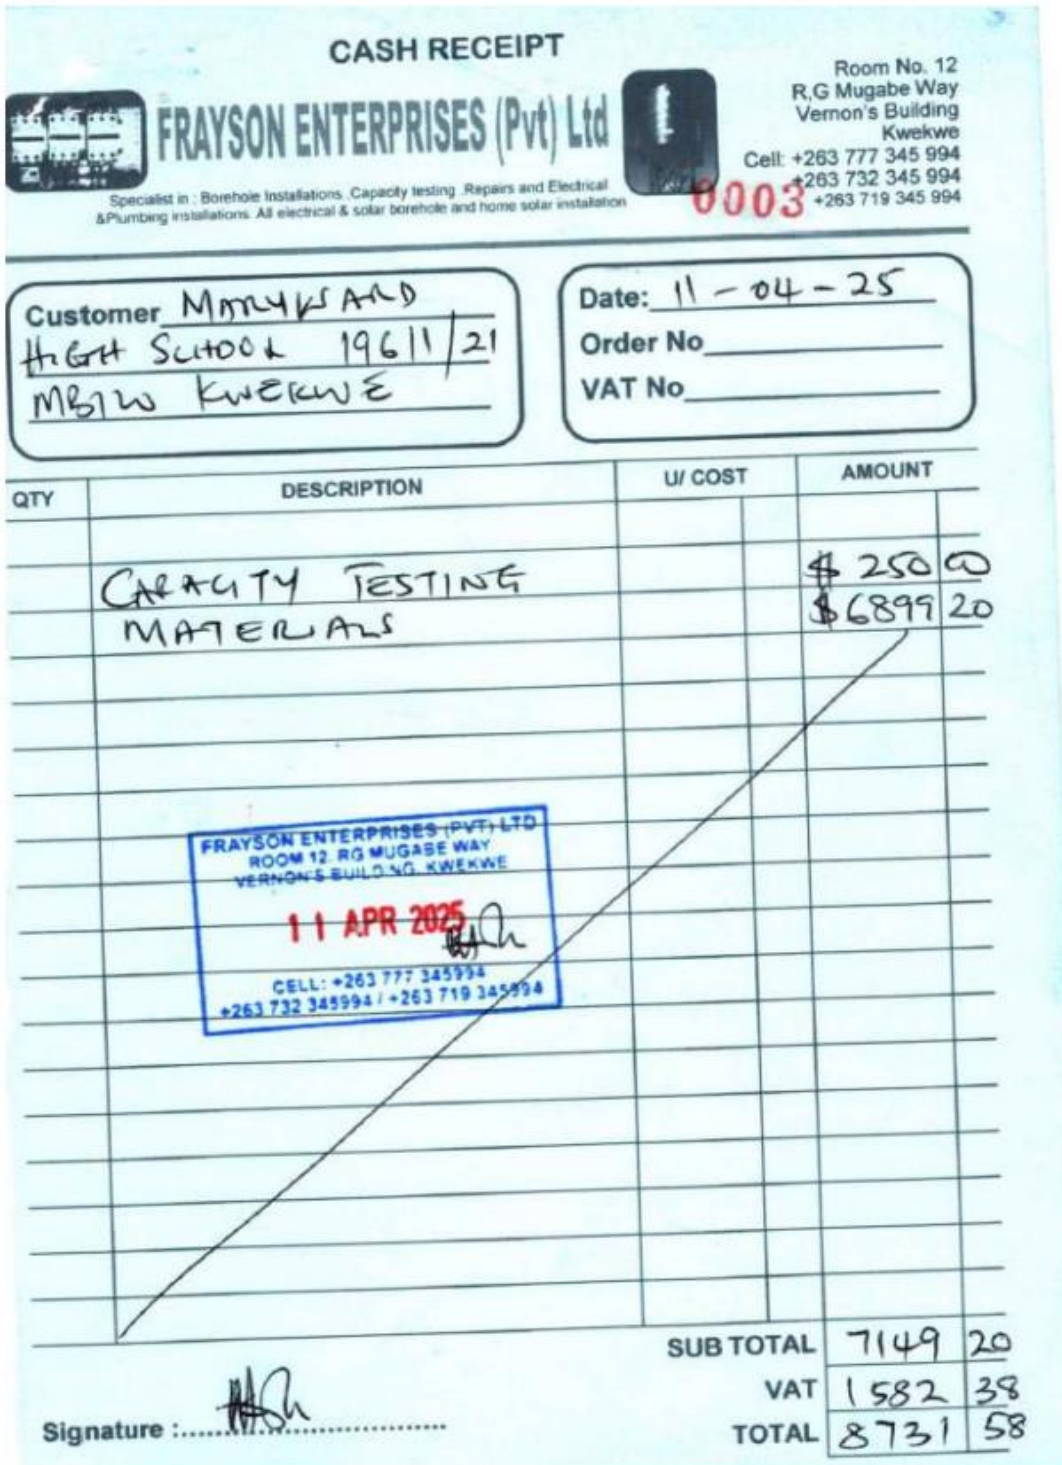 CASH RECEIPT
FRAYSON ENTERPRISES (Pvt) Ltd
Specialist in : Borehole Installations ,Capacity testing ,Repairs and Electrical
&Plumbing installations. All electrical & solar borehole and home solar installation
Room No. 12
R,G Mugabe Way
Vernon's Building
Kwekwe
Cell: +263 777 345 994
+263 732 345 994
+263 719 345 994
0003
Customer MARYWARD
HIGH SCHOOL 19611/21
MBIZO KWEKWE
Date: 11-04-25
Order No
VAT No
QTY DESCRIPTION U/ COST AMOUNT
CAPACITY TESTING $ 250 00
MATERIALS $6899 20
FRAYSON ENTERPRISES (PVT) LTD
ROOM 12. RG MUGABE WAY
VERNON'S BUILDING, KWEKWE
11 APR 2025
CELL: +263 777 345994
+263 732 345994 / +263 719 345994
SUB TOTAL 7149 20
VAT 1582 38
TOTAL 8731 58
Signature :